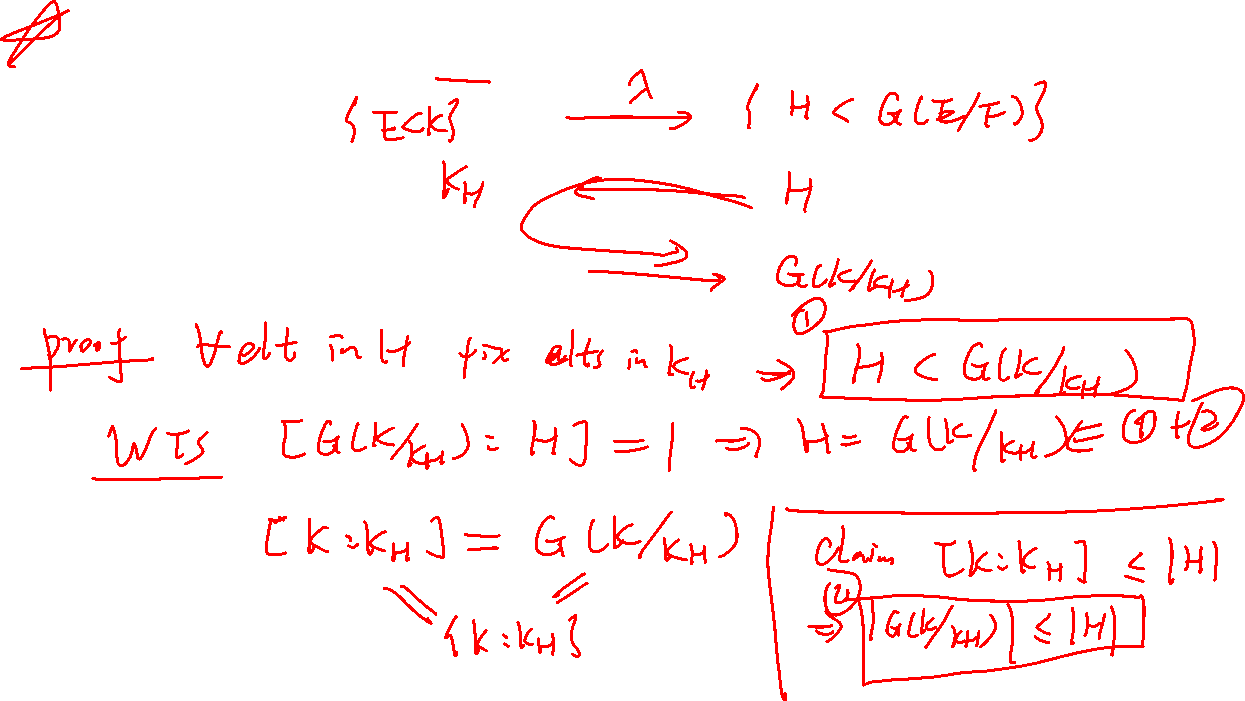 {E<K} λ→ { H < G(E/F)}
K_H ← H
→ G(K/K_H)
proof ∀elt in H fix elts in K_H ⇒ ① H < G(K/K_H)
WTS [G(K/K_H) : H] = 1 ⇒ H = G(K/K_H) ⇐ ① + ②
[K : K_H] = G(K/K_H)
{K : K_H}
claim [K : K_H] ≤ |H|
② ⇒ |G(K/K_H)| ≤ |H|